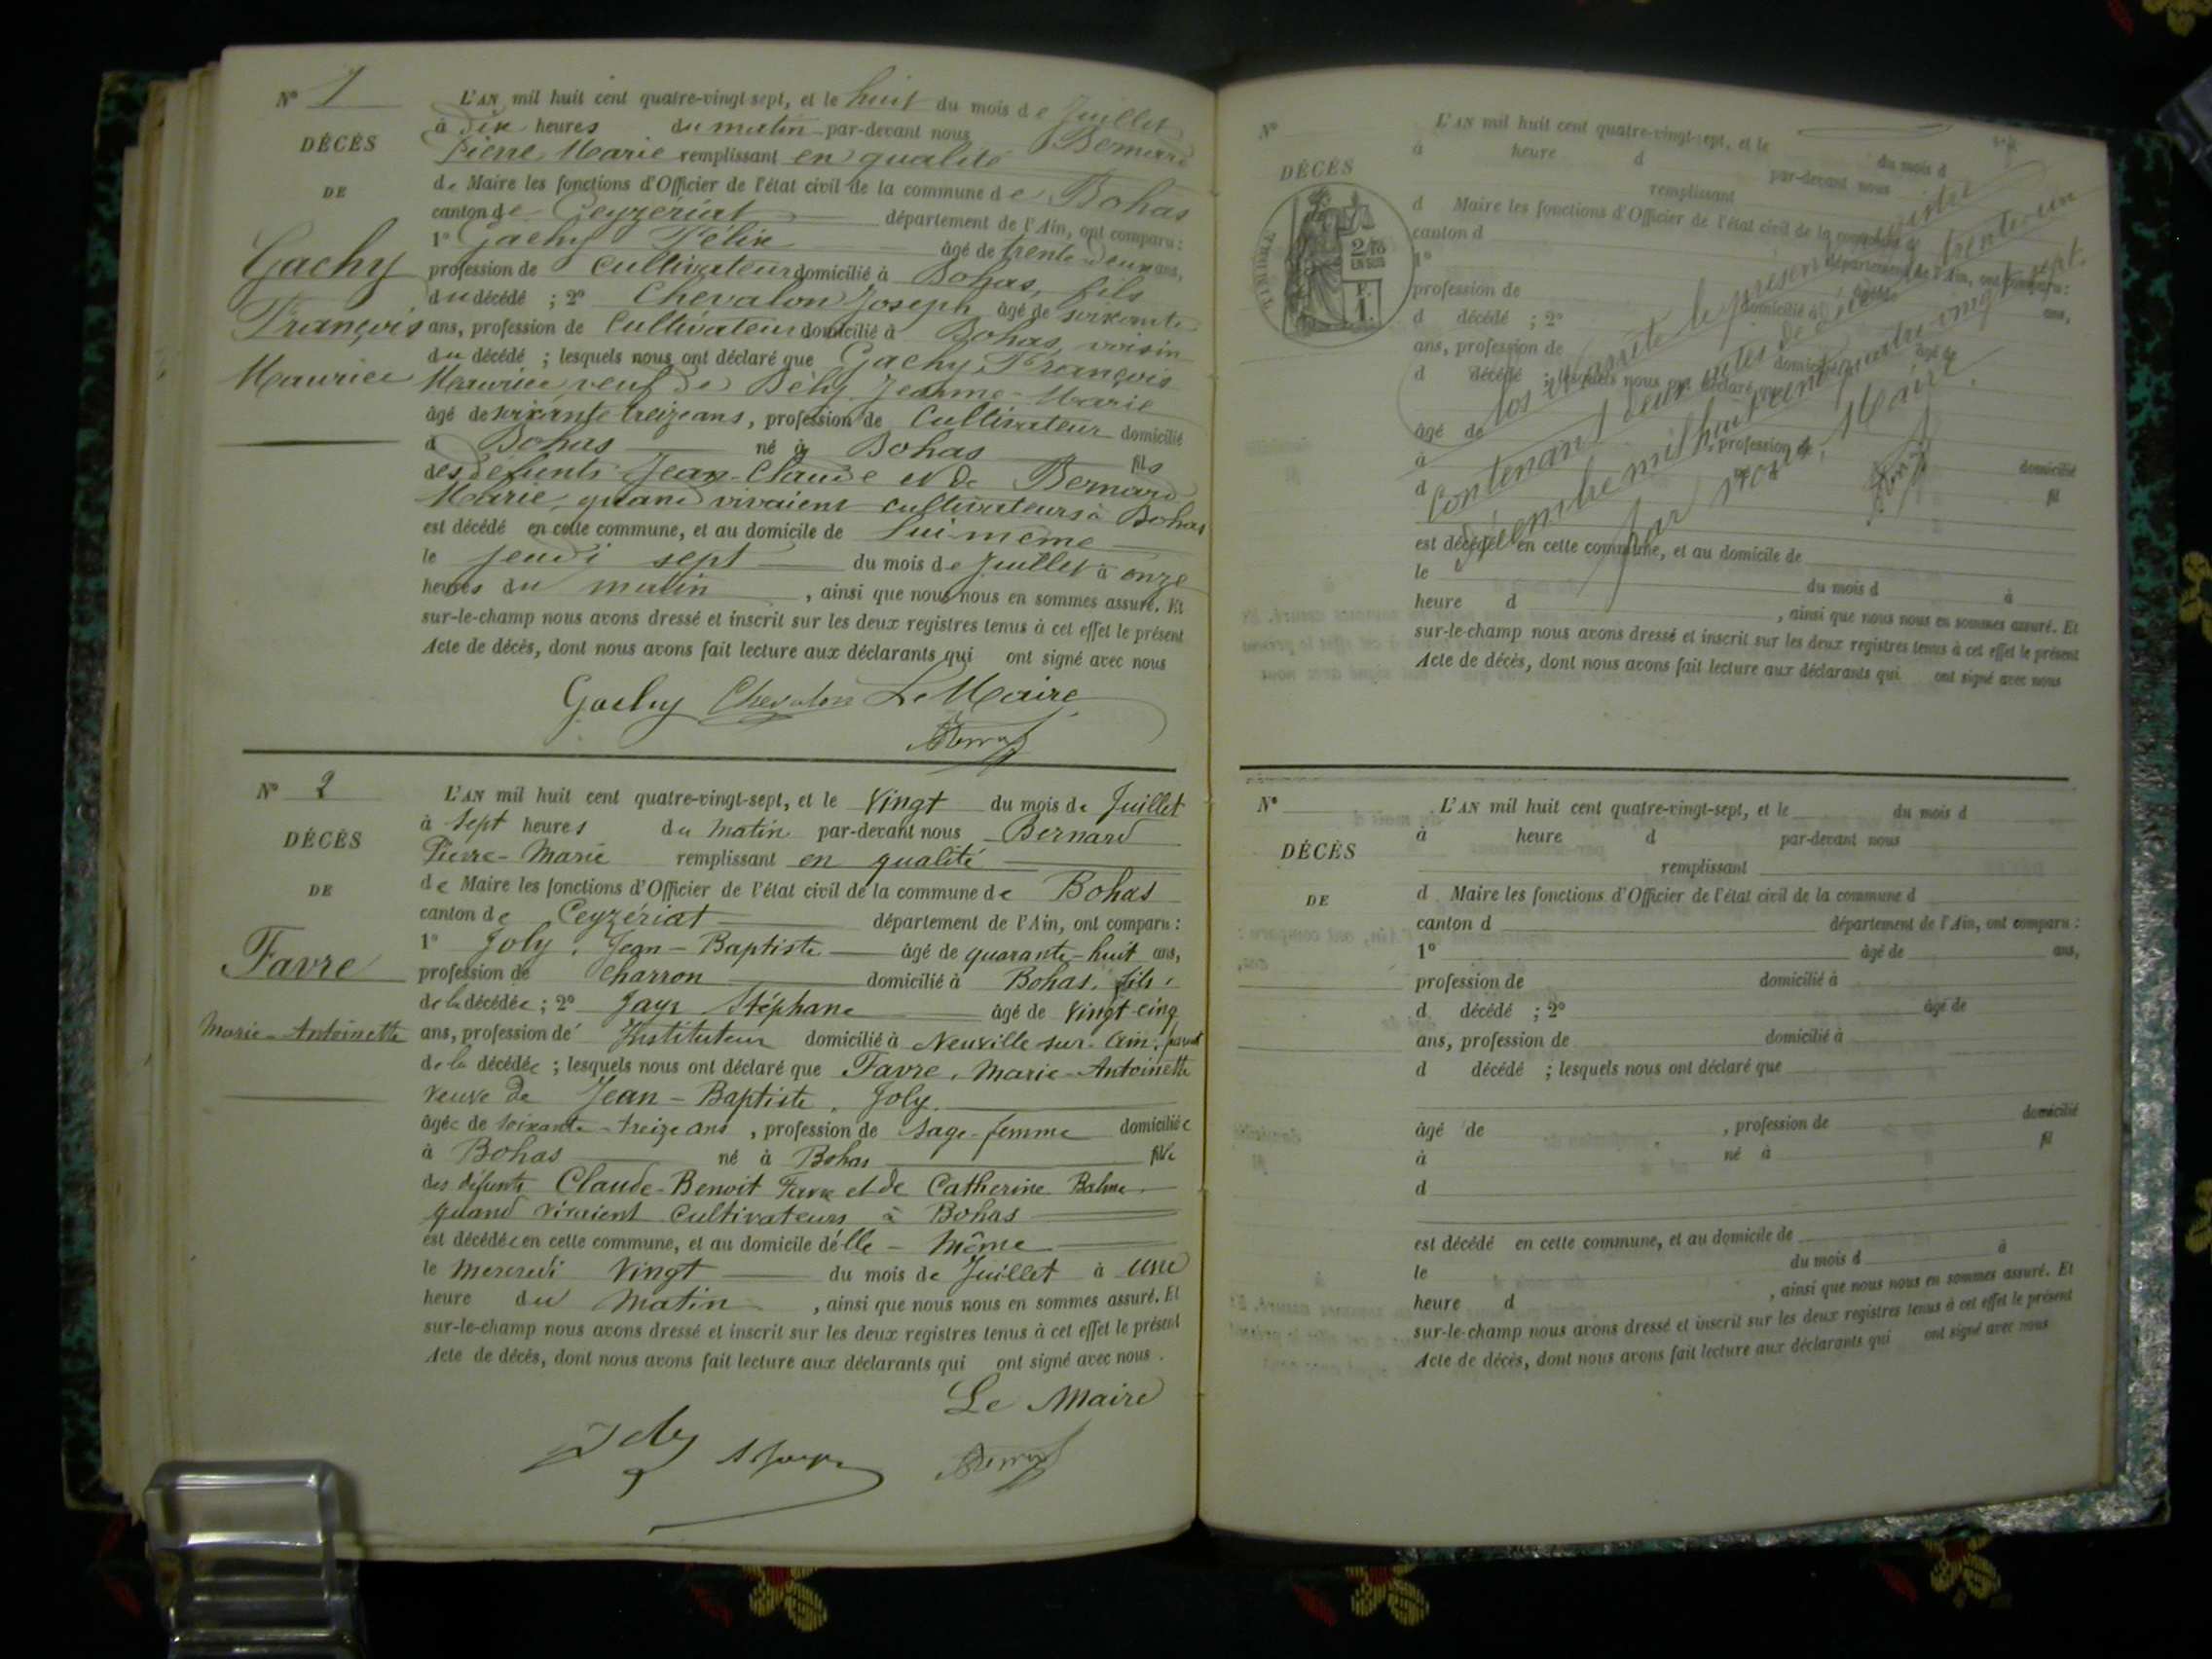 N° 1
DÉCÈS
DE
Gachy
François
Maurice
L'AN mil huit cent quatre-vingt-sept, et le huit du mois de Juillet
à dix heures du matin par-devant nous Bernard
Pierre Marie remplissant en qualité
de Maire les fonctions d'Officier de l'état civil de la commune de Bohas
canton de Ceyzériat département de l'Ain, ont comparu :
1° Gachy Félix âgé de trente deux ans,
profession de Cultivateur domicilié à Bohas, fils
du décédé ; 2° Chevalon Joseph âgé de soixante
ans, profession de Cultivateur domicilié à Bohas, voisin
du décédé ; lesquels nous ont déclaré que Gachy, François
Maurice veuf de Bély Jeanne-Marie
âgé de soixante treize ans, profession de Cultivateur domicilié
à Bohas né à Bohas fils
des défunts Jean-Claude et de Bernard
Marie, quand vivaient cultivateurs à Bohas
est décédé en cette commune, et au domicile de lui même
le jeudi sept du mois de Juillet à onze
heures du matin , ainsi que nous nous en sommes assuré. Et
sur-le-champ nous avons dressé et inscrit sur les deux registres tenus à cet effet le présent
Acte de décès, dont nous avons fait lecture aux déclarants qui ont signé avec nous
Gachy Chevalon Le Maire
N° 2
DÉCÈS
DE
Favre
Marie-Antoinette
L'AN mil huit cent quatre-vingt-sept, et le Vingt du mois de Juillet
à Sept heures du matin par-devant nous Bernard
Pierre-Marie remplissant en qualité
de Maire les fonctions d'Officier de l'état civil de la commune de Bohas
canton de Ceyzériat département de l'Ain, ont comparu :
1° Joly, Jean-Baptiste âgé de quarante-huit ans,
profession de Charron domicilié à Bohas, fils
de la décédée ; 2° Jayr Stéphane âgé de Vingt-cinq
ans, profession de Instituteur domicilié à Neuville sur-Ain, parent
de la décédée ; lesquels nous ont déclaré que Favre, Marie-Antoinette
Veuve de Jean-Baptiste, Joly.
âgée de soixante-treize ans , profession de Sage-femme domiciliée
à Bohas né à Bohas fille
des défunts Claude-Benoit Favre et de Catherine Balme
quand vivaient Cultivateurs à Bohas
est décédée en cette commune, et au domicile d'elle-Même
le Mercredi Vingt du mois de Juillet à une
heure du Matin , ainsi que nous nous en sommes assuré. Et
sur-le-champ nous avons dressé et inscrit sur les deux registres tenus à cet effet le présent
Acte de décès, dont nous avons fait lecture aux déclarants qui ont signé avec nous.
Le Maire
Joly
N°
DÉCÈS
TIMBRE
2/10
EN SUS
F.
1.
L'AN mil huit cent quatre-vingt-sept, et le du mois d
à heure d par-devant nous
remplissant
d Maire les fonctions d'Officier de l'état civil de la commune d
canton d département de l'Ain, ont comparu :
1° âgé de ans,
profession de domicilié à
d décédé ; 2° âgé de
ans, profession de domicilié à
d décédé ; lesquels nous ont déclaré que
âgé de , profession de domicilié
à né à fil
d
est décédé en cette commune, et au domicile de
le du mois d à
heure d , ainsi que nous nous en sommes assuré. Et
sur-le-champ nous avons dressé et inscrit sur les deux registres tenus à cet effet le présent
Acte de décès, dont nous avons fait lecture aux déclarants qui ont signé avec nous
Clos et arrêté le présent registre
contenant deux actes de décès le trente-un
décembre mil huit cent quatre-vingt-sept.
par nous, Maire.
N°
DÉCÈS
DE
L'AN mil huit cent quatre-vingt-sept, et le du mois d
à heure d par-devant nous
remplissant
d Maire les fonctions d'Officier de l'état civil de la commune d
canton d département de l'Ain, ont comparu :
1° âgé de ans,
profession de domicilié à
d décédé ; 2° âgé de
ans, profession de domicilié à
d décédé ; lesquels nous ont déclaré que
âgé de , profession de domicilié
à né à fil
d
est décédé en cette commune, et au domicile de
le du mois d à
heure d , ainsi que nous nous en sommes assuré. Et
sur-le-champ nous avons dressé et inscrit sur les deux registres tenus à cet effet le présent
Acte de décès, dont nous avons fait lecture aux déclarants qui ont signé avec nous